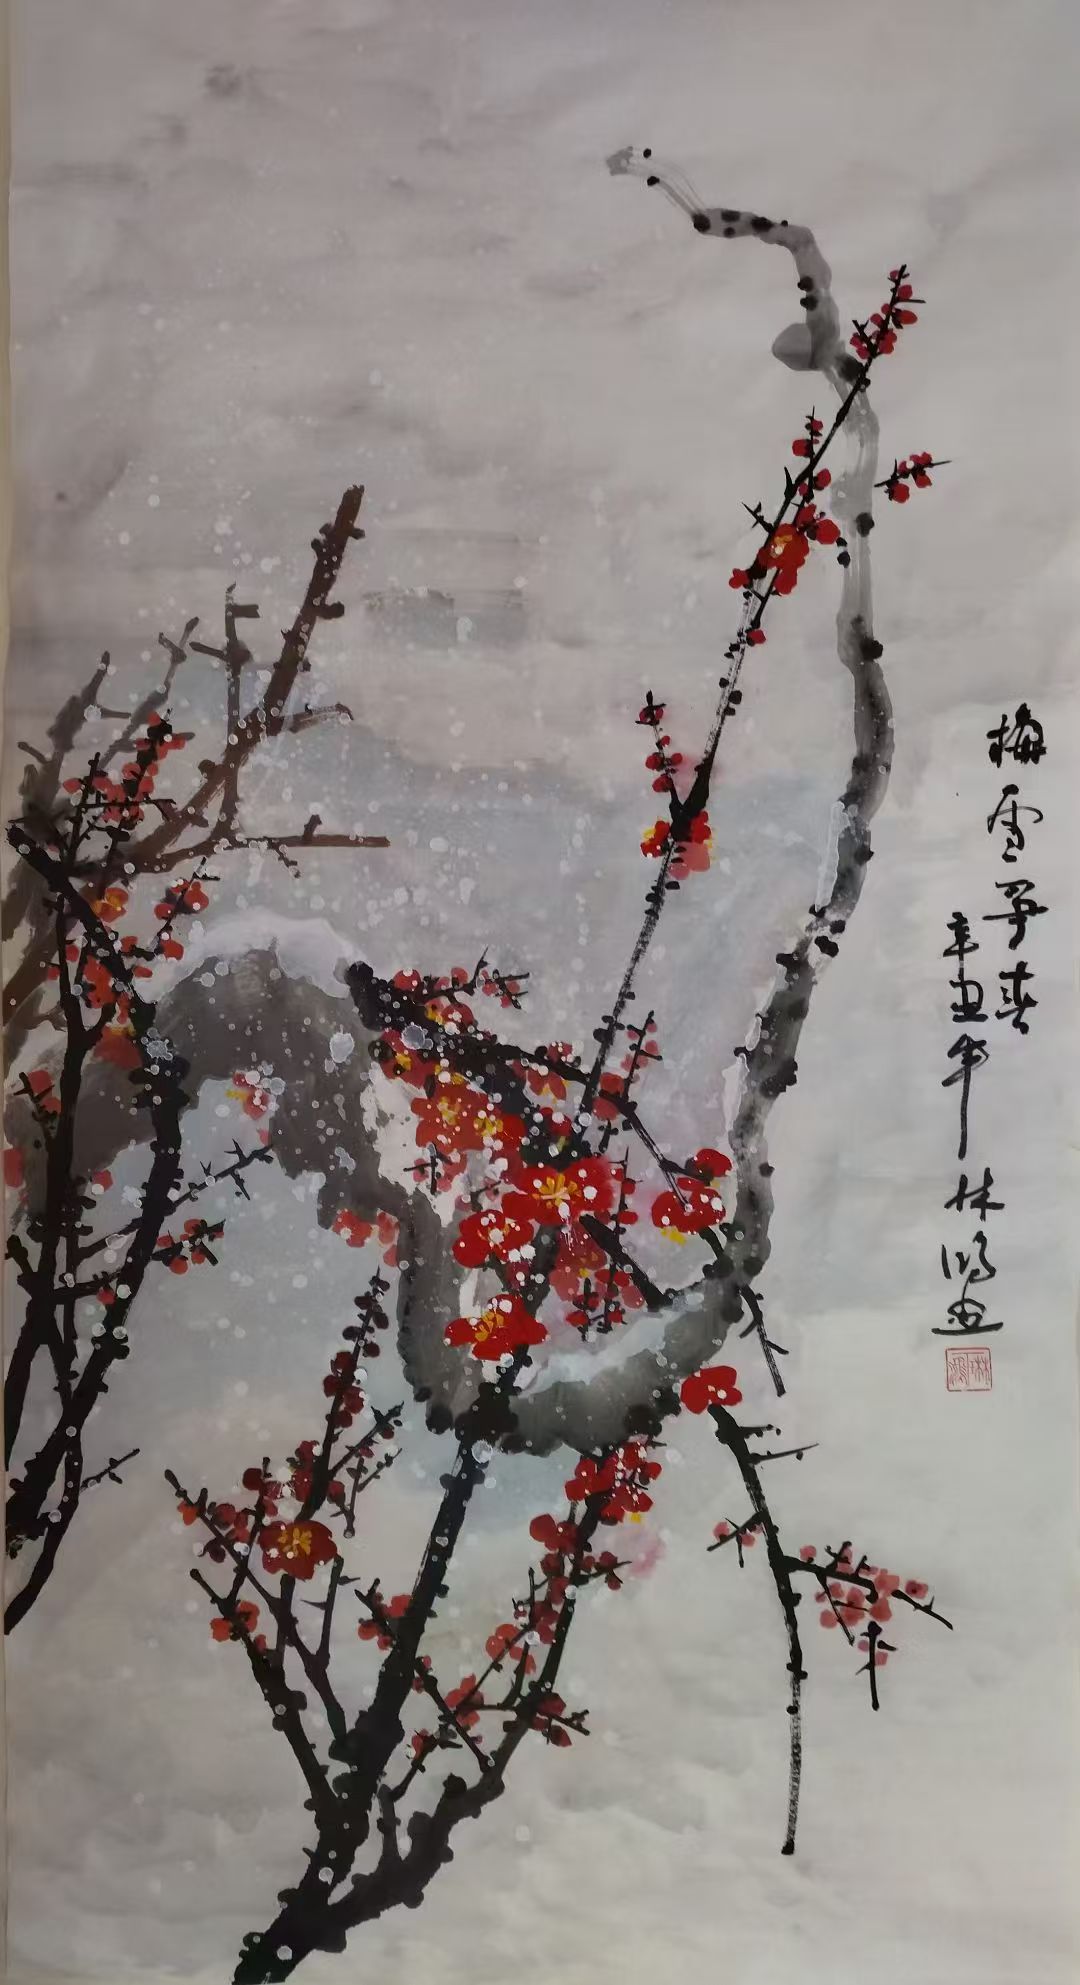 梅雪争春
辛丑年林鸿画